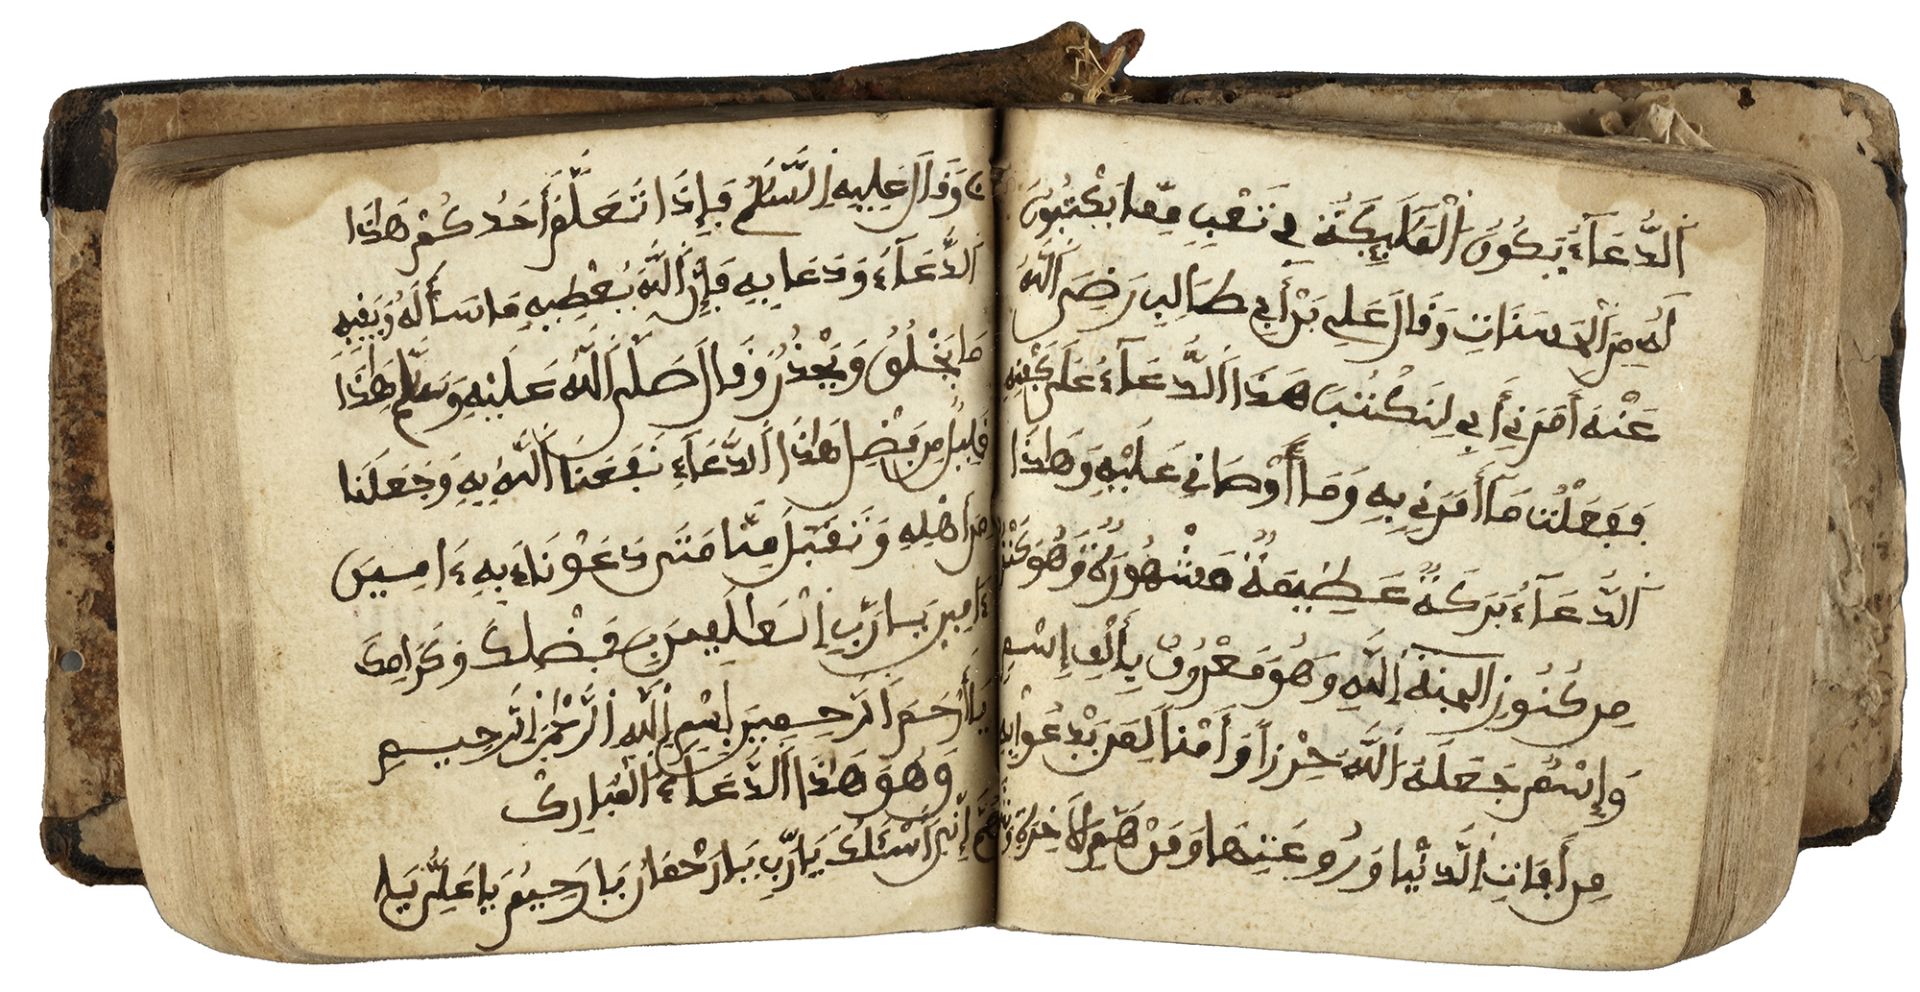 الدُّعَآءُ يَكُونُ الْمَلَٰٓئِكَةُ فِي تَعَبٍ مِمَّا يَكْتُبُونَ
لَهُ مِنَ الْحَسَنَاتِ وَقَالَ عَلِي بَنْ أَبِي طَالِبٍ رَضِيَ اللَّهُ
عَنْهُ أَمَرَنِي أَبِي لِنَكْتُبَ هَذَا الدُّعَآءُ عَلَى كَفَنِهِ
فَفَعَلْتُ مَآ أَمَرَنِي بِهِ وَمَآ أَوْصَانِي عَلَيْهِ وَهَٰذَا
الدُّعَآءُ بَرَكَةٌ عَظِيمَةٌ مَشْهُورَةٌ وَهُوَ كَنْزٌ
مِن كُنُوزِ الجنة اللَّهِ وَهُوَ مَعْرُوفٌ بِأَلْفِ إِسْمٍ
وَإِسْمٌ جَعَلَهُ اللَّهُ حِرْزاً وَأَمْناً لِمَن يَدْعُوا بِهِ
مِن أَفَاتِ الدُّنْيَا وَرُوعَتِهَا وَمَنْ هَمِّ الَاخِرَةِ
وَقَالَ عَلَيْهِ السَّلَٰمُ فَإِذَا تَعَلَّمَ أَحَدُكُمْ هَٰذَا
الدُّعَآءُ وَدَعَا بِهِ فَإِنَّ اللَّهَ يُعْطِيهِ مَا سَأَلَهُ وَيَقِيهِ
مَا يَخْلُقُ وَيَحْذُرُ وَقَالَ صَلَّى اللَّهُ عَلَيْهِ وَسَلَّمَ هَٰذَا
قَلِيلٌ مِن فَضْلِ هَٰذَا الدُّعَآءِ نَفَعَنَا اللَّهُ بِهِ وَجَعَلَنَا
مِنَ اهْلِهِ وَتَقَبَّلَ مِنَّا مَتَى دَعَوْنَاهُ بِهِ ءَامِينَ
ءَامِينَ يَا رَبِّ الْعَٰلَمِينَ بِفَضْلِكَ وَكَرَامِكَ
يَا أَرْحَمَ الرَّحِمِينَ بِسْمِ اللَّهِ الرَّحْمَٰنِ الرَّحِيمِ
وَهُوَ هَٰذَا الدُّعَآءُ الْمُبَارِكْ
اللَّهُمَّ إِنِّي أَسْئَلُكَ يَا رَبِّ يَا رَحْمَانُ يَا رَحِيمُ يَا عَلِيُّ يَا